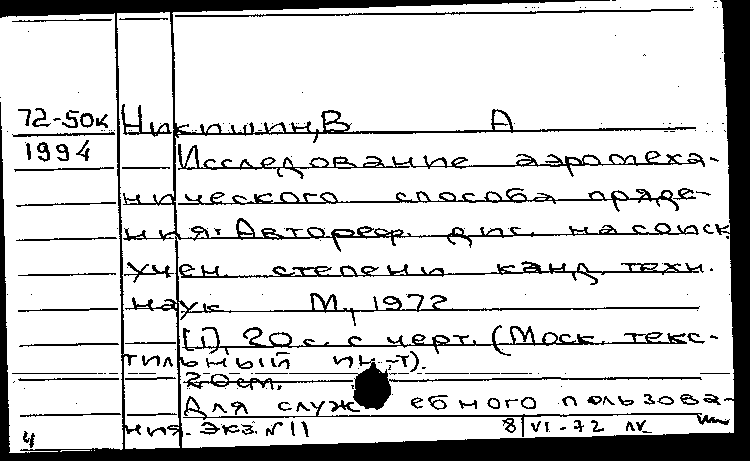 72-50к Никишин, В А
1994 Исследование аэромеха-
нического способа пряде-
ния. Автореф. дис. на соиск
учен. степени канд. техн.
наук. М., 1972
[1], 20 с. с черт. (Моск. текс-
тильный ин-т).
20 cm.
Для служебного пользова-
ния. Экз. № 11 8/VI-72 ЛК
4